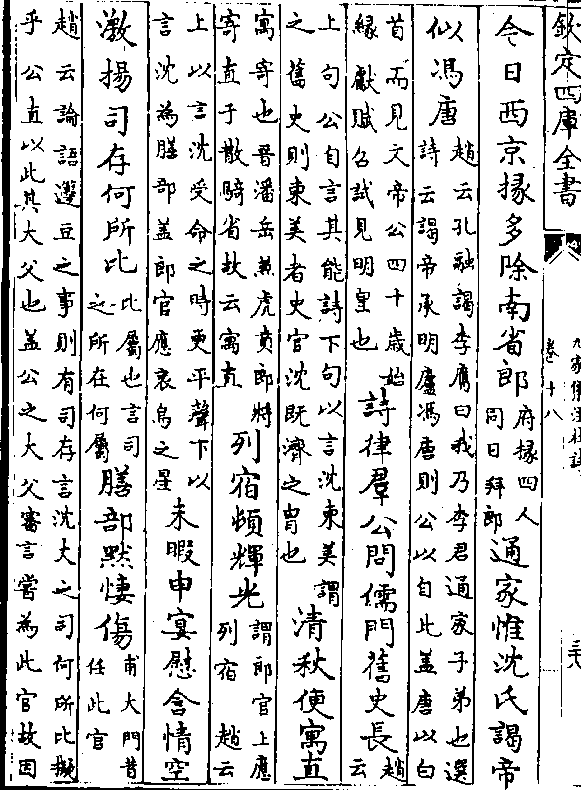 欽定四庫全書
九家集注杜詩
卷十八
今日西京掾多除南省郎府掾四人同日拜郎通家惟沈氏謁帝
似馮唐趙云孔融謁李膺曰我乃李君通家子弟也選詩云謁帝承明廬馮唐則公以自比盖唐以白
首而見文帝公四十歲始緣獻賦召試見明皇也詩律羣公問儒門舊史長趙云
上句公自言其能詩下句以言沈東美謂之舊史則東美者史官沈既濟之胄也清秋便寓直
寓寄也晉潘岳兼虎賁郎將寄直于散騎省故云寓直列宿頓輝光謂郎官上應列宿 趙云
上以言沈受命之時更平聲下以言沈為膳部盖郎官應哀烏之星未暇申宴慰含情空
激揚司存何所比比屬也言司之所在何屬膳部黙悽傷甫大門昔任此官
趙云論語籩豆之事則有司存言沈大之司何所比擬乎公直以此其大父也盖公之大父審言嘗為此官故因